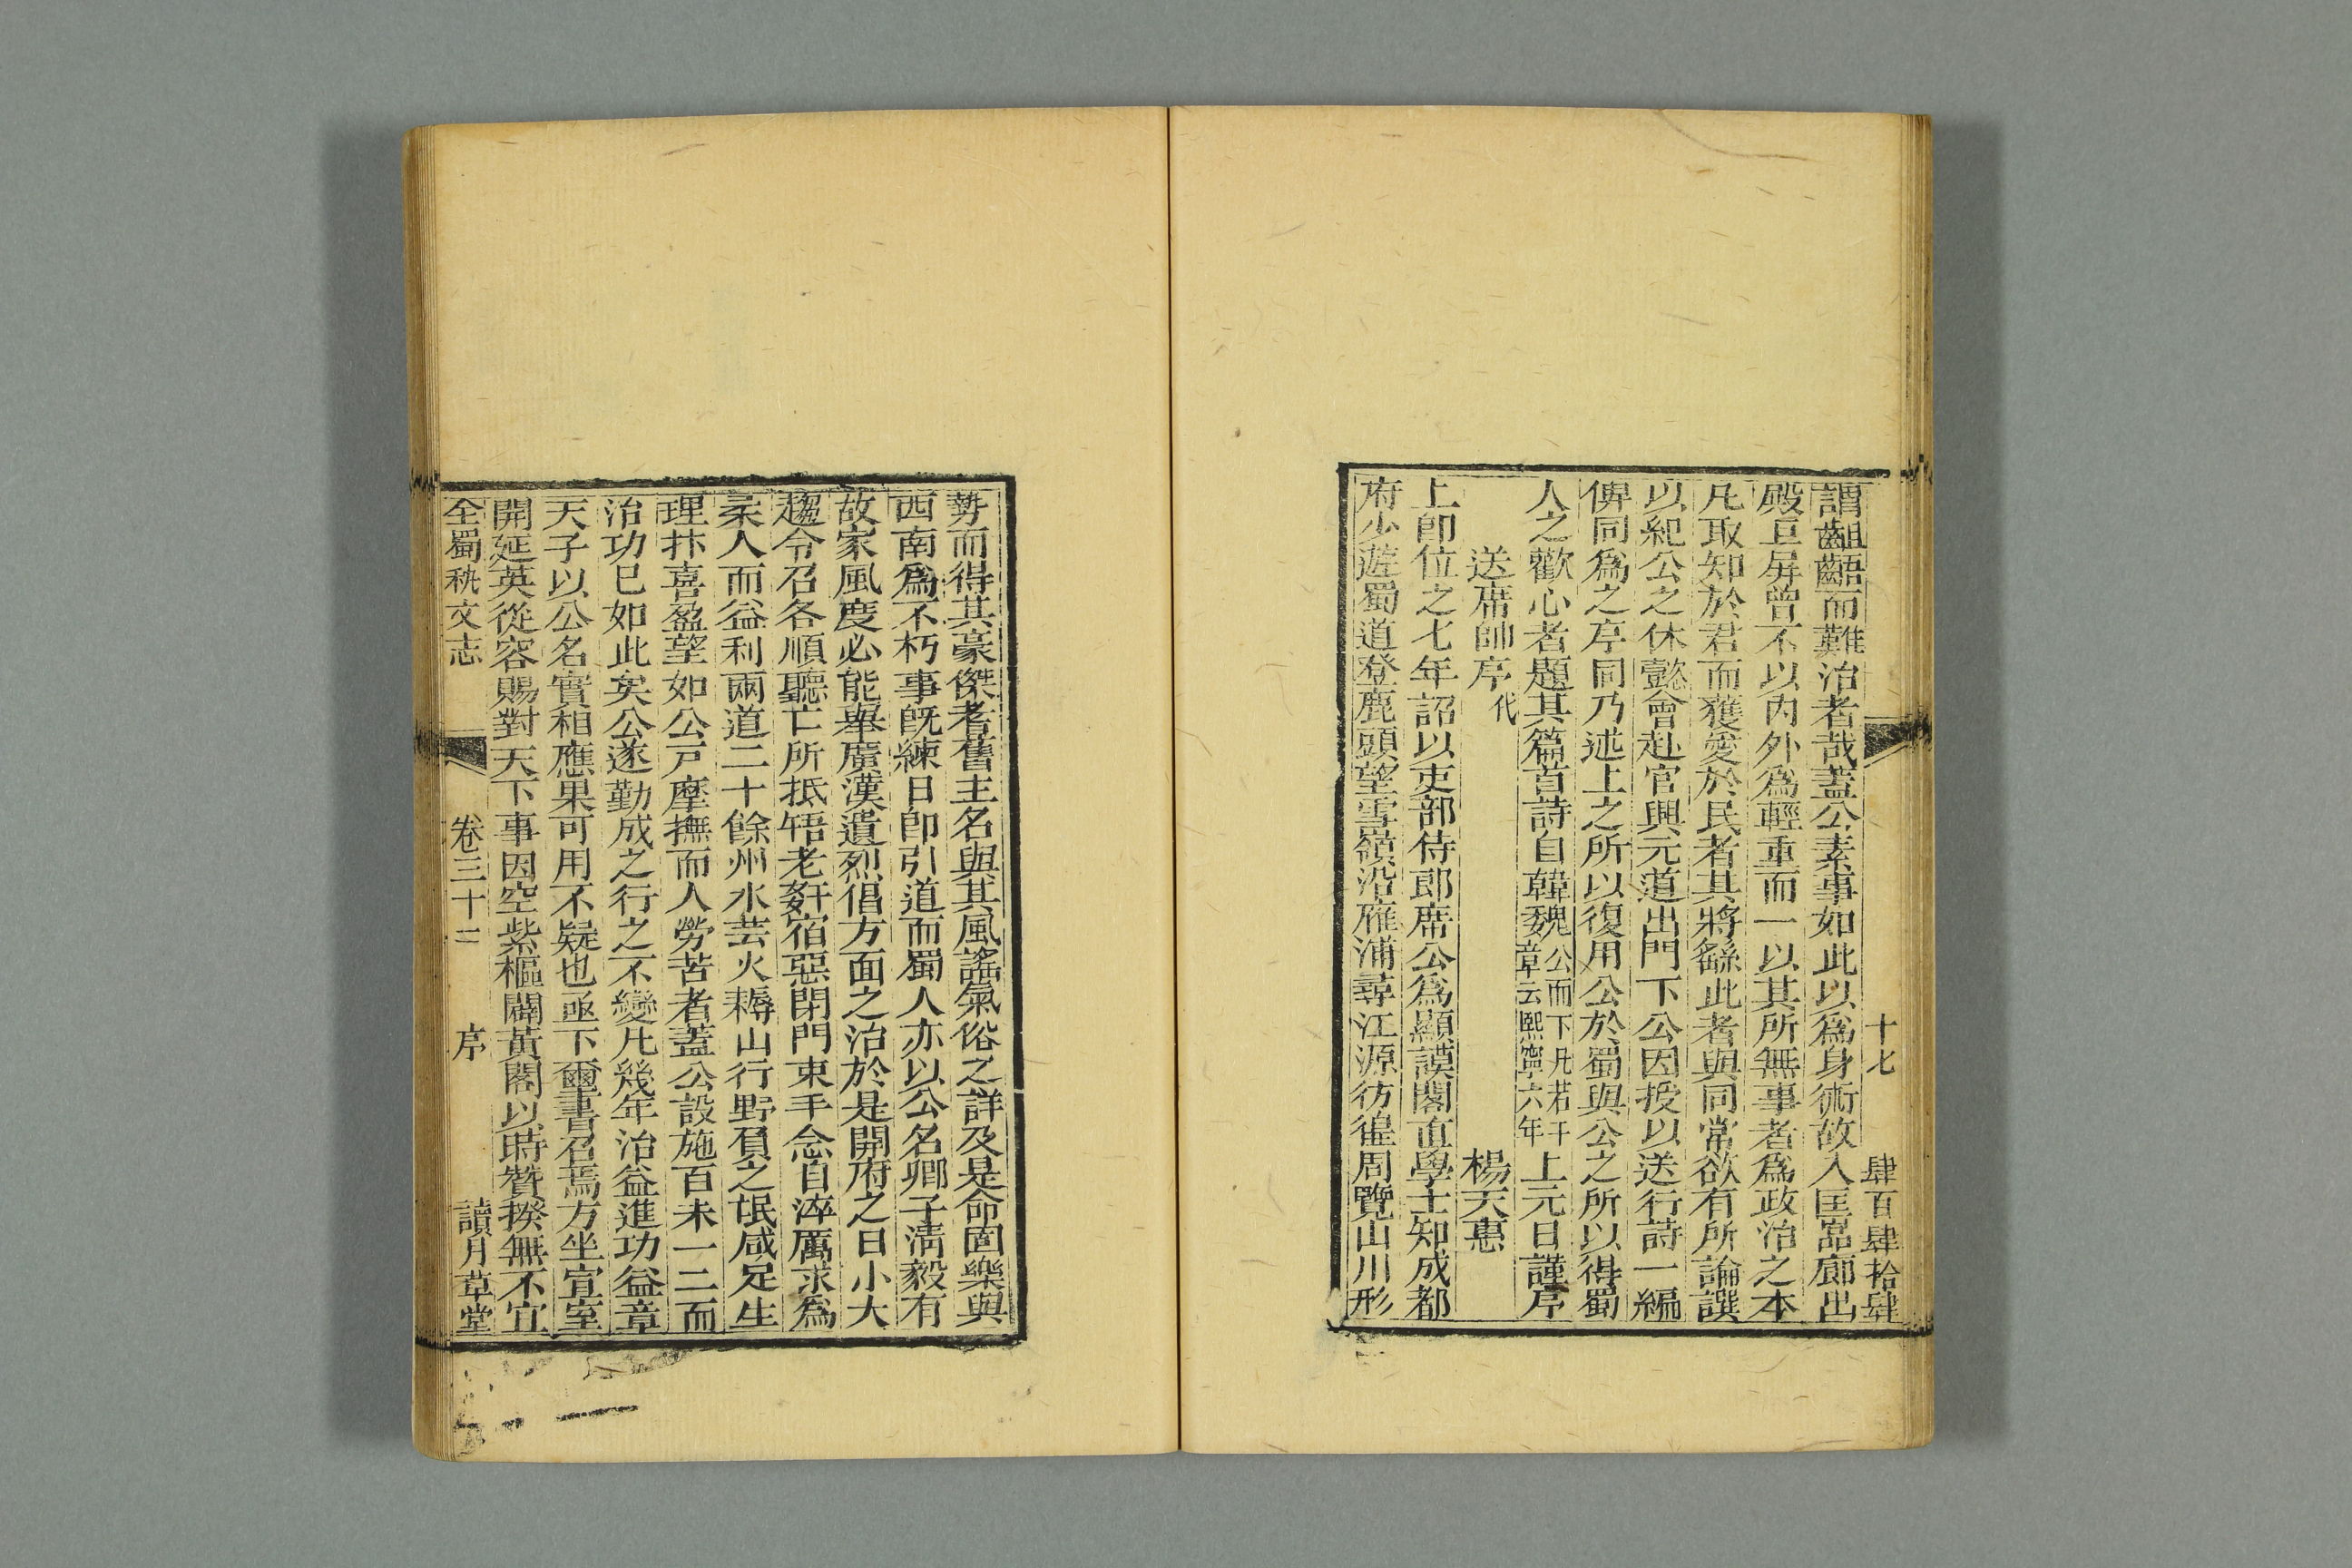 十七 肆百肆拾肆
謂齟齬而難治者哉蓋公素事如此以爲身術故入匡嵓廊出
殿亘屏曾不以內外爲輕重而一以其所無事者爲政治之本
凡取知於君而獲愛於民者其將繇此者與同常欲有所論譔
以紀公之休懿會赴官興元道出門下公因授以送行詩一編
俾同爲之序同乃述上之所以復用公於蜀與公之所以得蜀
人之歡心者題其篇首詩自韓魏公而下凡若干章云熙寧六年上元日謹序
送席帥序代 楊天惠
上卽位之七年詔以吏部侍郎席公爲顯謨閣直學士知成都
府少遊蜀道登鹿頭望雪嶺沿雁浦尋江源彷徨周覽山川形
勢而得其豪傑耆舊主名與其風謠氣俗之詳及是命固樂與
西南爲不朽事旣練日卽引道而蜀人亦以公名卿子淸毅有
故家風度必能舉廣漢遺烈倡方面之治於是開府之日小大
趨令召各順聽亡所抵牾老姦宿惡閉門束手念自淬厲求爲
柔人而益利兩道二十餘州水芸火耨山行野負之氓咸足生
理抃喜盈望如公戸摩撫而人勞苦者蓋公設施百未一二而
治功已如此矣公遂勤成之行之不變凡幾年治益進功益章
天子以公名實相應果可用不疑也亟下璽書召焉方坐宣室
開延英從容賜對天下事因空紫樞闢黃閣以時贊揆無不宜
全蜀秇文志 卷三十二 序 讀月草堂